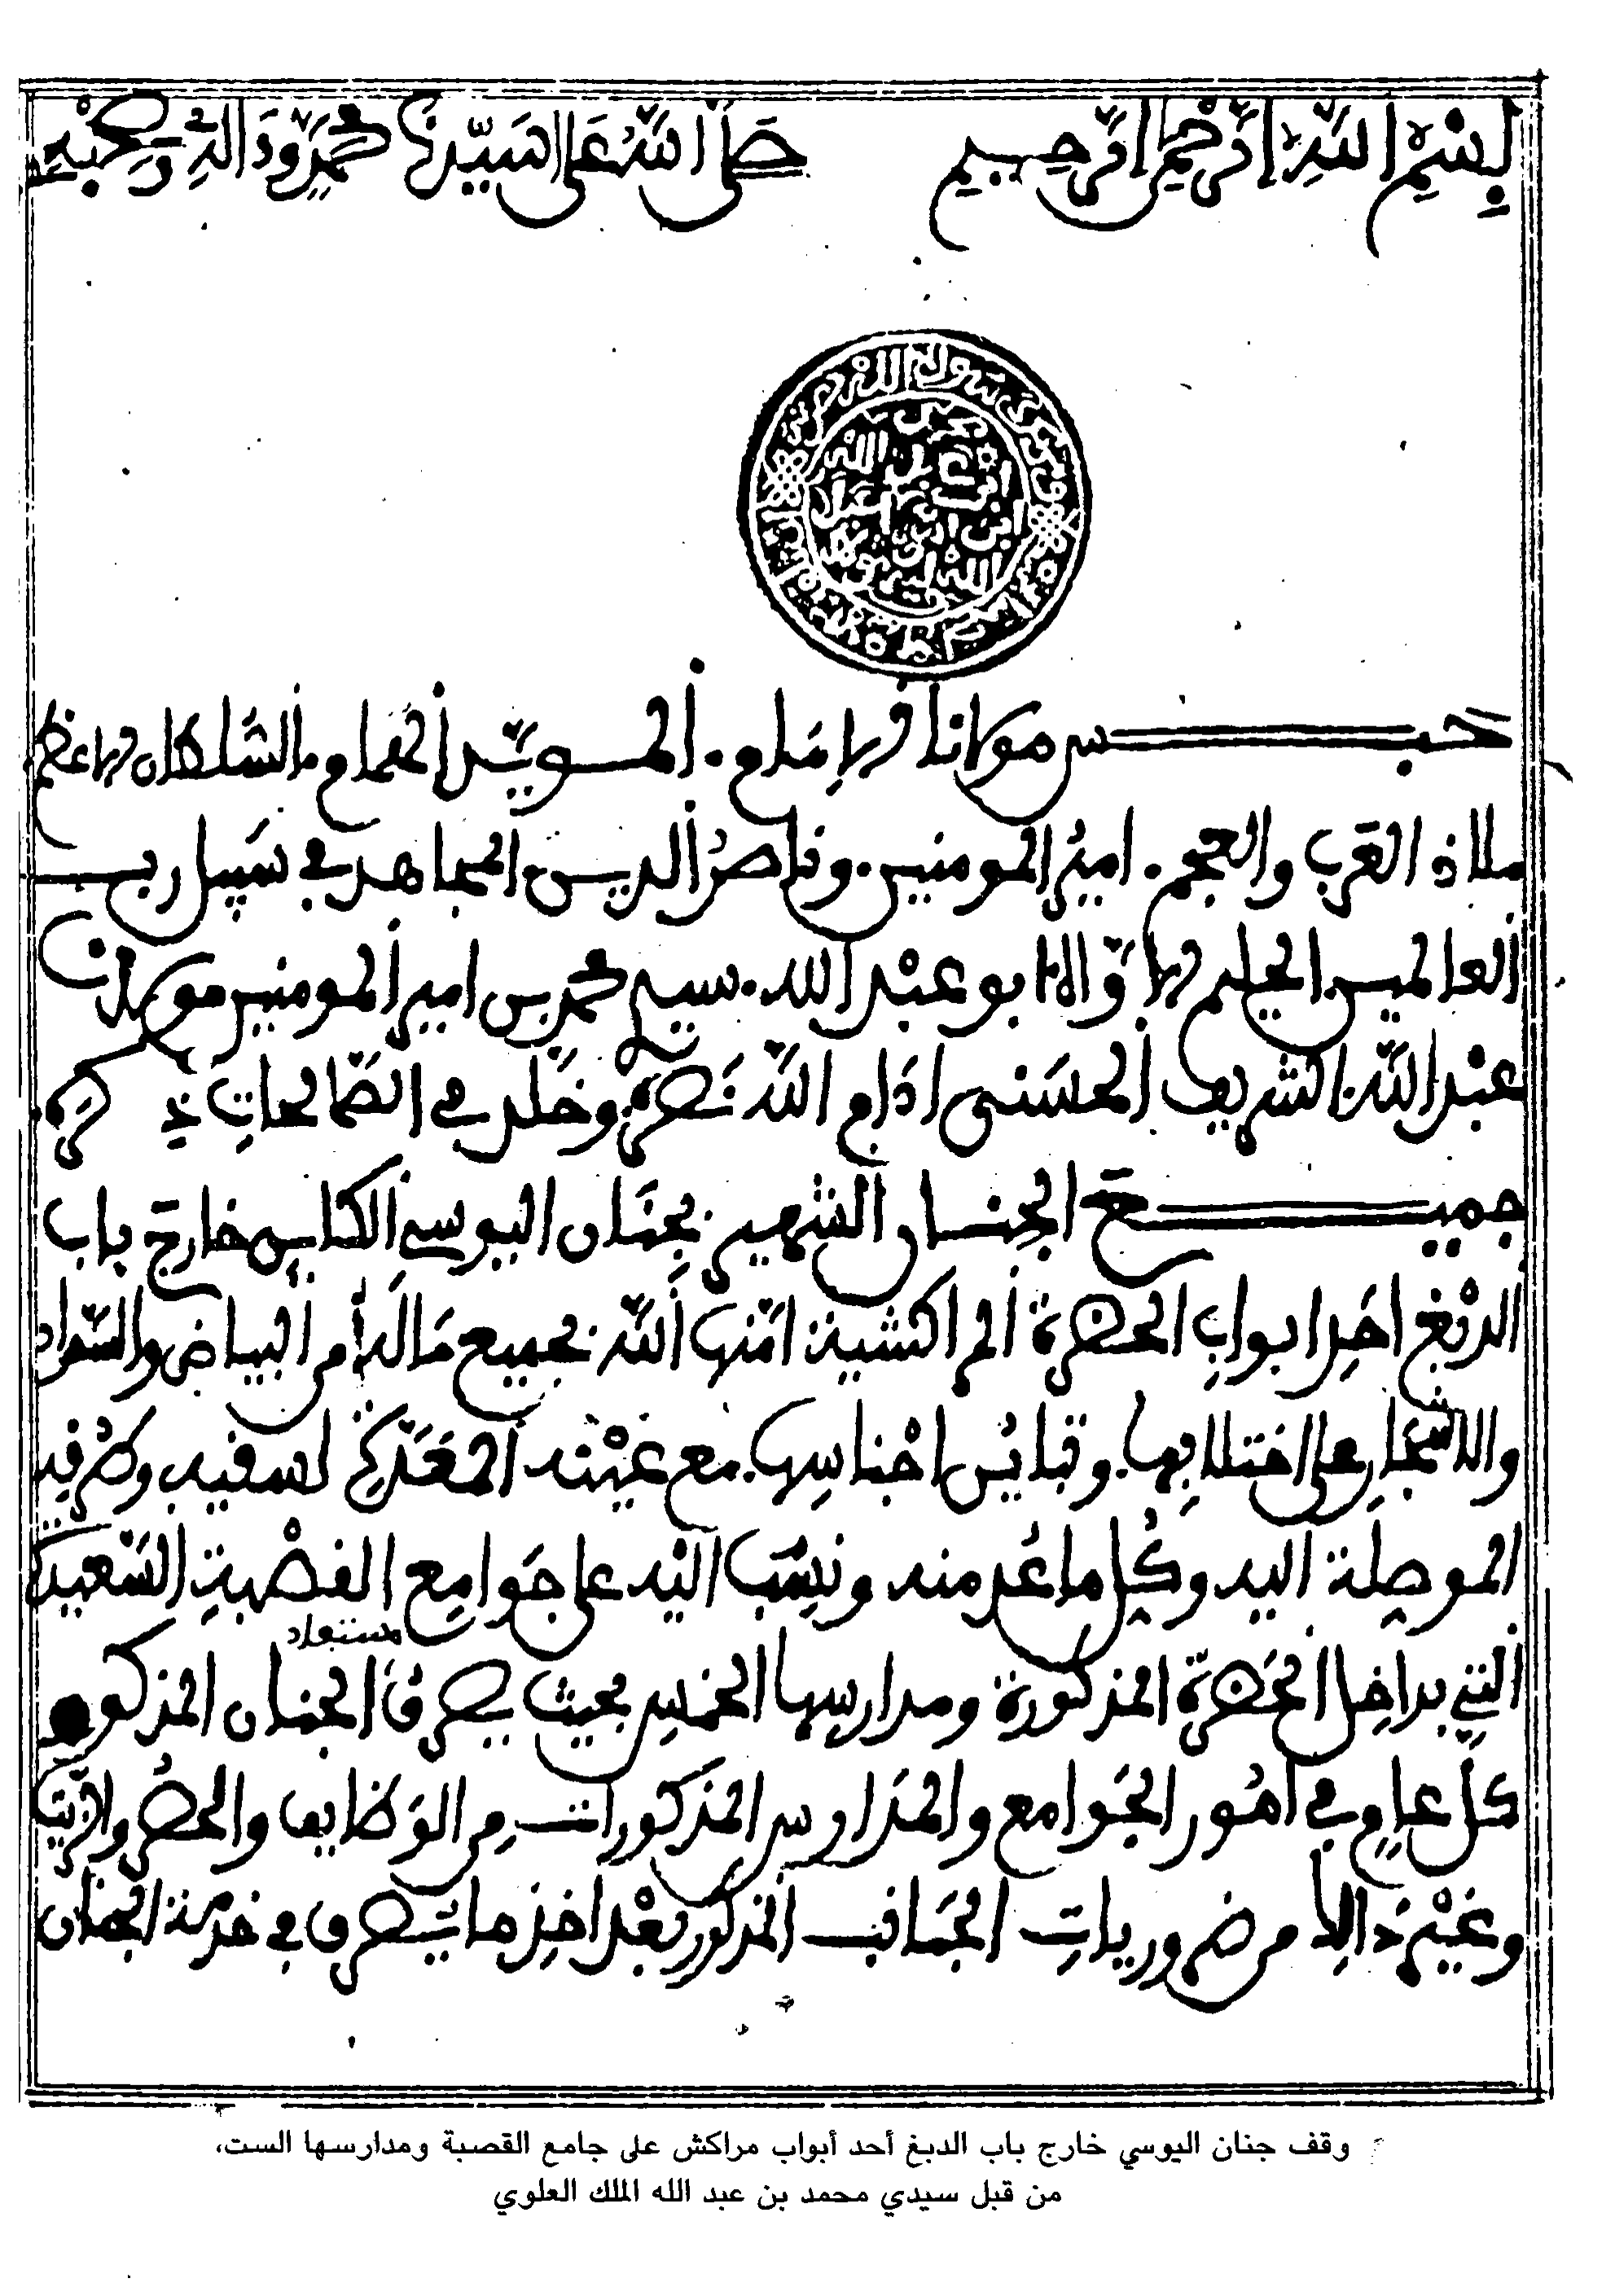 بسم الله الرحمن الرحيم صلى الله على سيدنا محمد وءاله وصحبه
حبس مولانا الإمام. المويد الهمام. السلطان الأعظم
ملاذ العرب والعجم. امير المومنين. وناصر الدين. المجاهد في سبيل رب
العالمين الحليم الاواه ابو عبد الله. سيدي محمد بن امير المومنين مولانا
عبد الله الشريف الحسني ادام الله نصره. وخلد في الصالحات ذكره
جميع الجنان الشهير بجنان اليوسي الكاين خارج باب
الدبغ احد ابواب الحضرة المراكشية امنها الله بجميع ماله من البياض والسواد
والاشجار على اختلافها. وتباين اجناسها. مع عينه المعدة لسقيه وطرقه
الموصلة اليه وكل ما عد منه ونسب اليه على جوامع القصبة السعيدة
التي بداخل الحضرة المذكورة ومدارسها الخمس بحيث يصرف مستفاد الجنان المذكور
كل عام في امور الجوامع والمدارس المذكورات من الوظايف والحصر والزيت
وغير ذالك من ضروريات الجانب المذكور بعد اخذ ما يصرف في خدمة الجنان
وقف جنان اليوسي خارج باب الدبغ أحد أبواب مراكش على جامع القصبة ومدارسها الست،
من قبل سيدي محمد بن عبد الله الملك العلوي